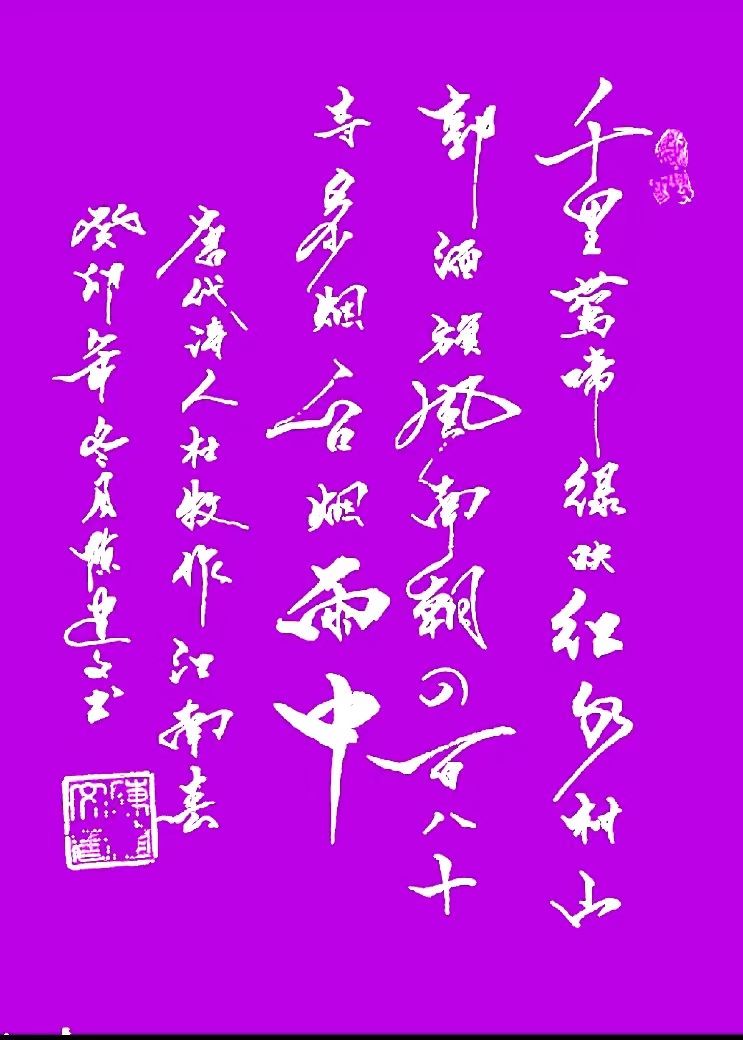 千里莺啼绿映红水村山
郭酒旗风南朝四百八十
寺多少烟台烟雨中
唐代诗人杜牧作江南春
癸卯年冬月陈建文书